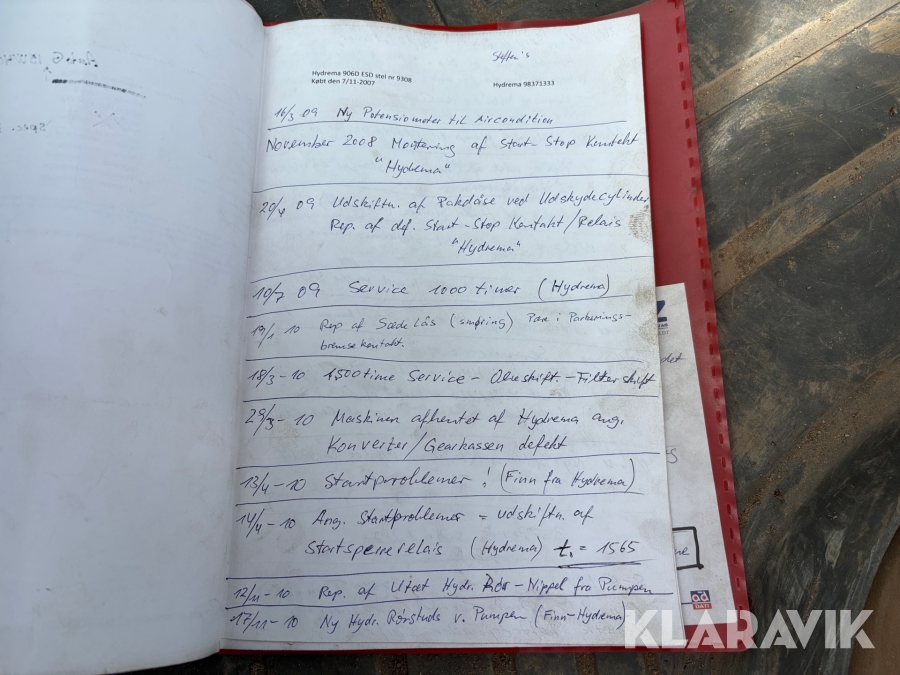 Steffen's
Hydrema 906D ESD stel nr 9308
Købt den 7/11-2007
Hydrema 98371333
16/3 09 Ny Potensiometer til Aircondition
November 2008 Montering af Start-Stop Kontakt
"Hydrema"
20/4 09 Udskiftn. af Pakdåse ved Udskydecylinder
Rep. af def. Start-Stop Kontakt/Relais
"Hydrema"
10/7 09 Service 1000 timer (Hydrema)
19/1 10 Rep af Sæde Lås (smøring) Pære i Parkerings-
bremsekontakt.
18/3-10 1500 time Service - Olieskift. - Filterskift
29/3-10 Maskinen afhentet af Hydrema ang.
Konverter/Gearkassen defekt
13/4-10 Startproblemer! (Finn fra Hydrema)
14/4-10 Ang. Startproblemer = udskiftn. af
Startspærrerelais (Hydrema) t, = 1565
12/11-10 Rep. af Utæt Hydr. Rør-Nippel fra Pumpen
17/11-10 Ny Hydr. Rørstuds v. Pumpen (Finn-Hydrema)
ad
DATI
KLARAVIK